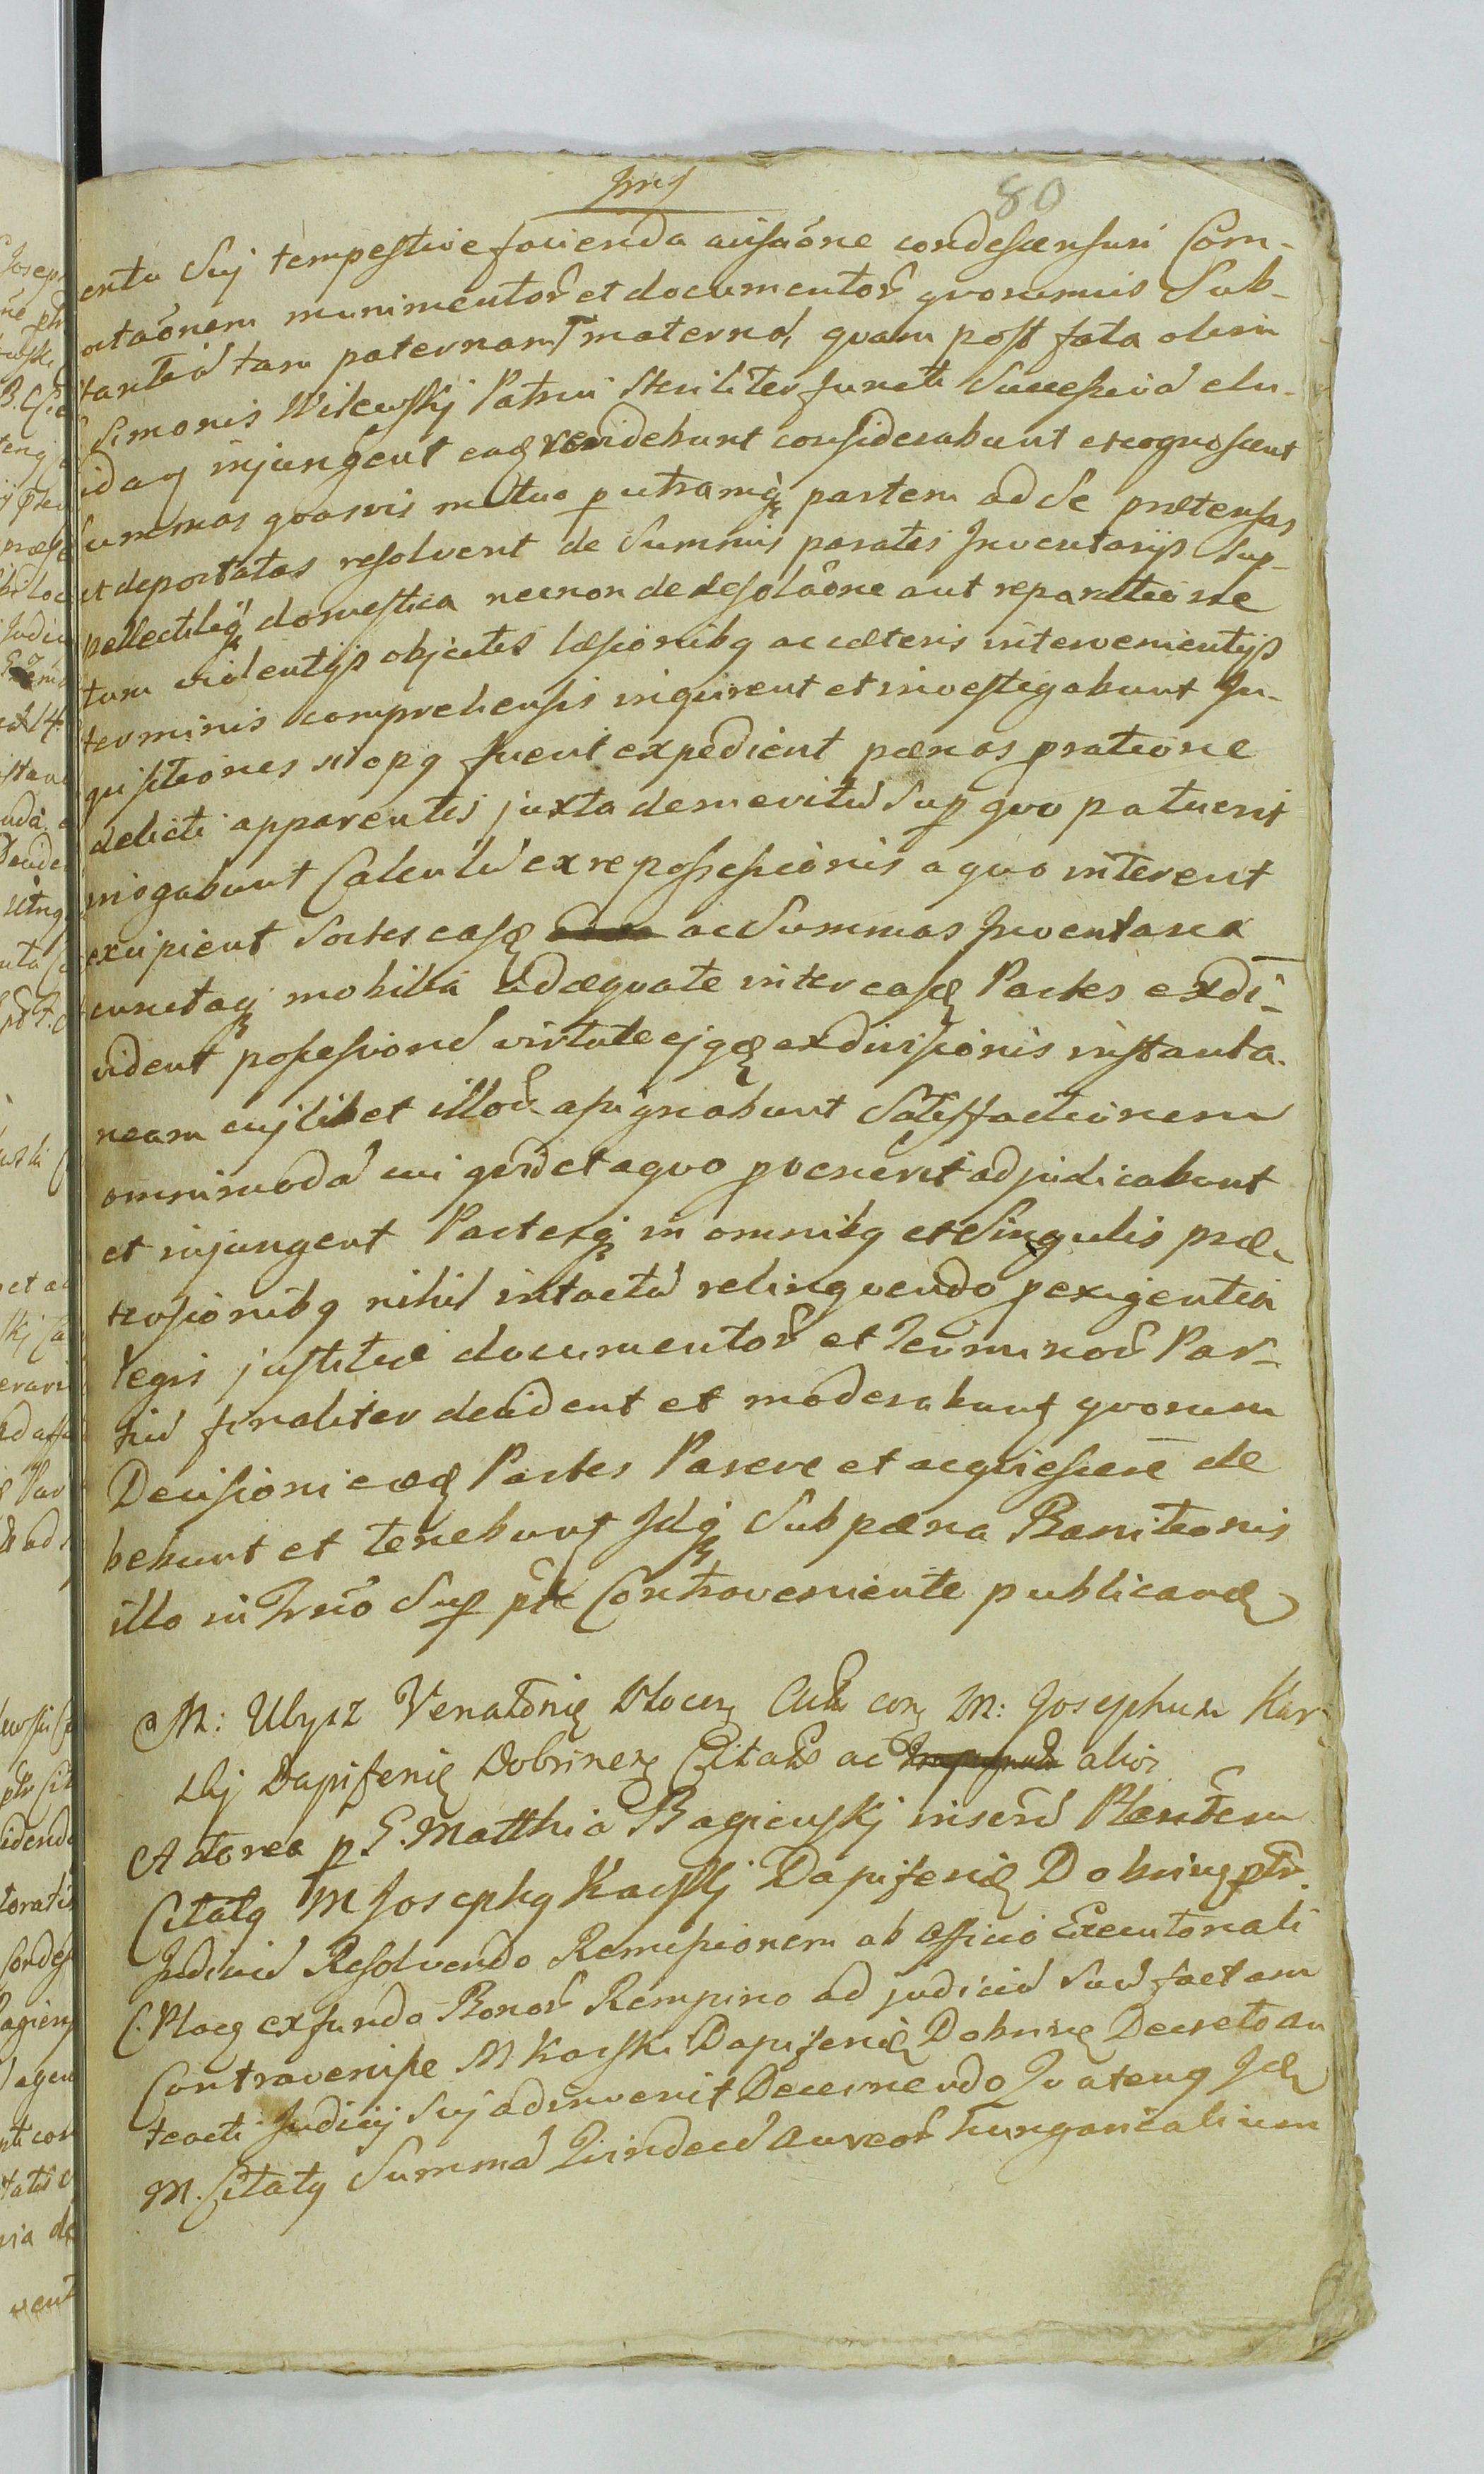 80
entu Suj tempestive facienda avisaõne condescensuri Com-
ortaõnem munimentor̃ et documentor̃ quorumvis Sub-
tantiã tam paternam maternã, quam post fata olim
Simonis Wilewskj Patrui steriliter functi Successivã elu-
idaq injungent eaq revidebunt considerabunt et cognoscent
Summas quasvis mutuo p utramq partem ad se prætensas
et deportatas resolvent de Summis paratis Inventarijs Sup-
pellectiliq domestica necnon de desolaõne aut reparatione
tum violentijs objectis læsionibq ac cæteris intervenientijs
terminis comprehensis inquirent et investigabunt In-
quisitiones si opq fuerit expedient pænas p ratione
delicti apparentis juxta demeritũ Sup quo patuerit
irrogabunt Calculũ ex re possessionis a quo interent
excipient Sortes easq ac Summas Inventaria
cunctaq mobilia adæquate inter easq Partes exdi-
vident possessionẽ virtute ejqq exdivisionis instanta-
neam cujlibet illor̃ assignabunt Satisfactionem
omnimodã cui et a quo pvenerit adjudicabunt
et injungent Partesq in omnibq et Singulis præ-
tensionibq nihil intactũ relinquendo p exigentia
legis justitiæ documentor̃ et Terminor̃ Par-
tiũ finaliter decident et moderabunt quorum
Decisioni eædq Partes Parere et acquiescere de
bebunt et tenebunt Idq Sub pæna Banitionis
illo in Trnõ Sup pte Contraveniente publicandæ
M: Ubysz Venatoriq Plocen con M: Josephum Kar-
skj Dapiferiq Dobrinen Citatũ ac alios
Actorea p G. Matthia Bagienskj Plenitem
Citatq M Josephq Karskj Dapiferiq Dobrinen ptr.
Judiciũ Resolvendo Remissionem ab Officio Executoriali
C. Ploce ex fundo Bonor̃ Rempino ad judiciũ Suũ factam
Contravenisse M Karski Dapiferiq Dobrine Decreto an
teacti Judicij Suj adinvenit Decernendo Quatenq Idẽ
M. Citatq Summã Quindecĩ Aureor̃ hungaricalium